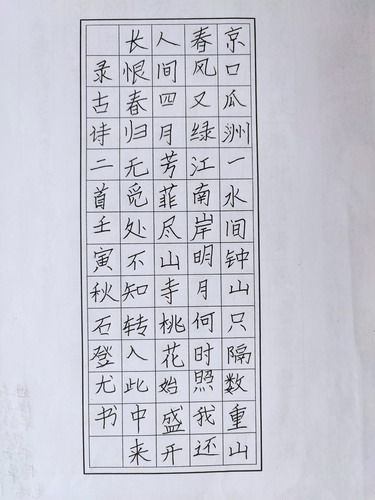 京口瓜洲一水间钟山只隔数重山
春风又绿江南岸明月何时照我还
人间四月芳菲尽山寺桃花始盛开
长恨春归无觅处不知转入此中来
录古诗二首壬寅秋石登尤书